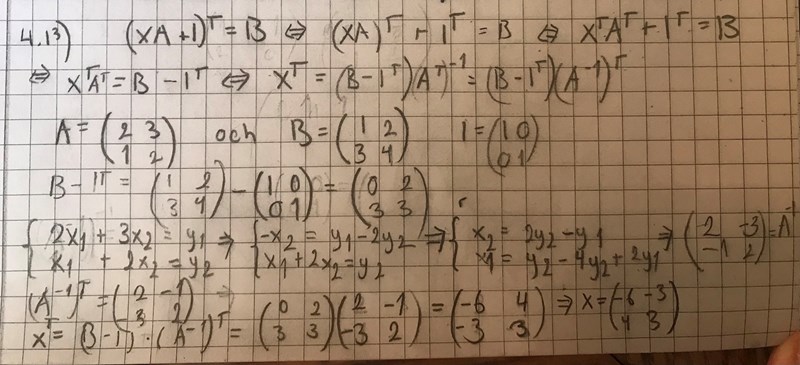 4.13) (XA+I)ᵀ = B ⇔ (XA)ᵀ + Iᵀ = B ⇔ XᵀAᵀ + Iᵀ = B
⇔ XᵀAᵀ = B - Iᵀ ⇔ Xᵀ = (B-Iᵀ)(Aᵀ)⁻¹ = (B-Iᵀ)(A⁻¹)ᵀ
A = (2 3; 1 2) och B = (1 2; 3 4) I = (1 0; 0 1)
B - Iᵀ = (1 2; 3 4) - (1 0; 0 1) = (0 2; 3 3)
{2x₁ + 3x₂ = y₁ ⇒ {-x₂ = y₁ - 2y₂ ⇒ {x₂ = 2y₂ - y₁ ⇒ (2 -3; -1 2) = A⁻¹
{x₁ + 2x₂ = y₂ {x₁ + 2x₂ = y₂ {x₁ = y₂ - 4y₂ + 2y₁
(A⁻¹)ᵀ = (2 -1; -3 2)
Xᵀ = (B - Iᵀ) · (A⁻¹)ᵀ = (0 2; 3 3)(2 -1; -3 2) = (-6 4; -3 3) ⇒ X = (-6 -3; 4 3)